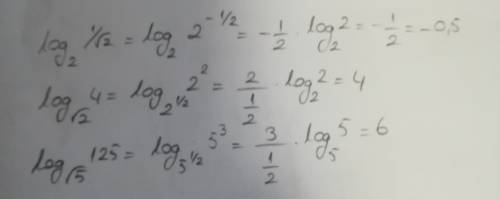 log₂ 1/√2 = log₂ 2^(-1/2) = -1/2 · log₂ 2 = -1/2 = -0,5
log_√2 4 = log_2^(1/2) 2² = 2/(1/2) · log₂ 2 = 4
log_√5 125 = log_5^(1/2) 5³ = 3/(1/2) · log₅ 5 = 6